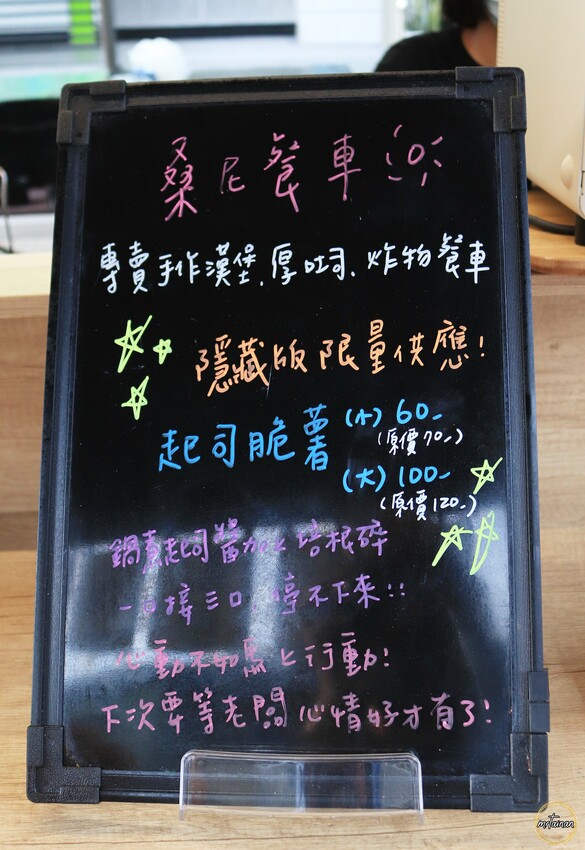 桑尼餐車
專賣手作漢堡、厚吐司、炸物餐車
隱藏版限量供應!
起司脆薯 (小) 60-
(原價70-)
(大) 100-
(原價120-)
鍋煮起司醬加上培根碎
一口接三口 停不下來!!
心動不如馬上行動!
下次要等老闆心情好才有了!
mrtainan